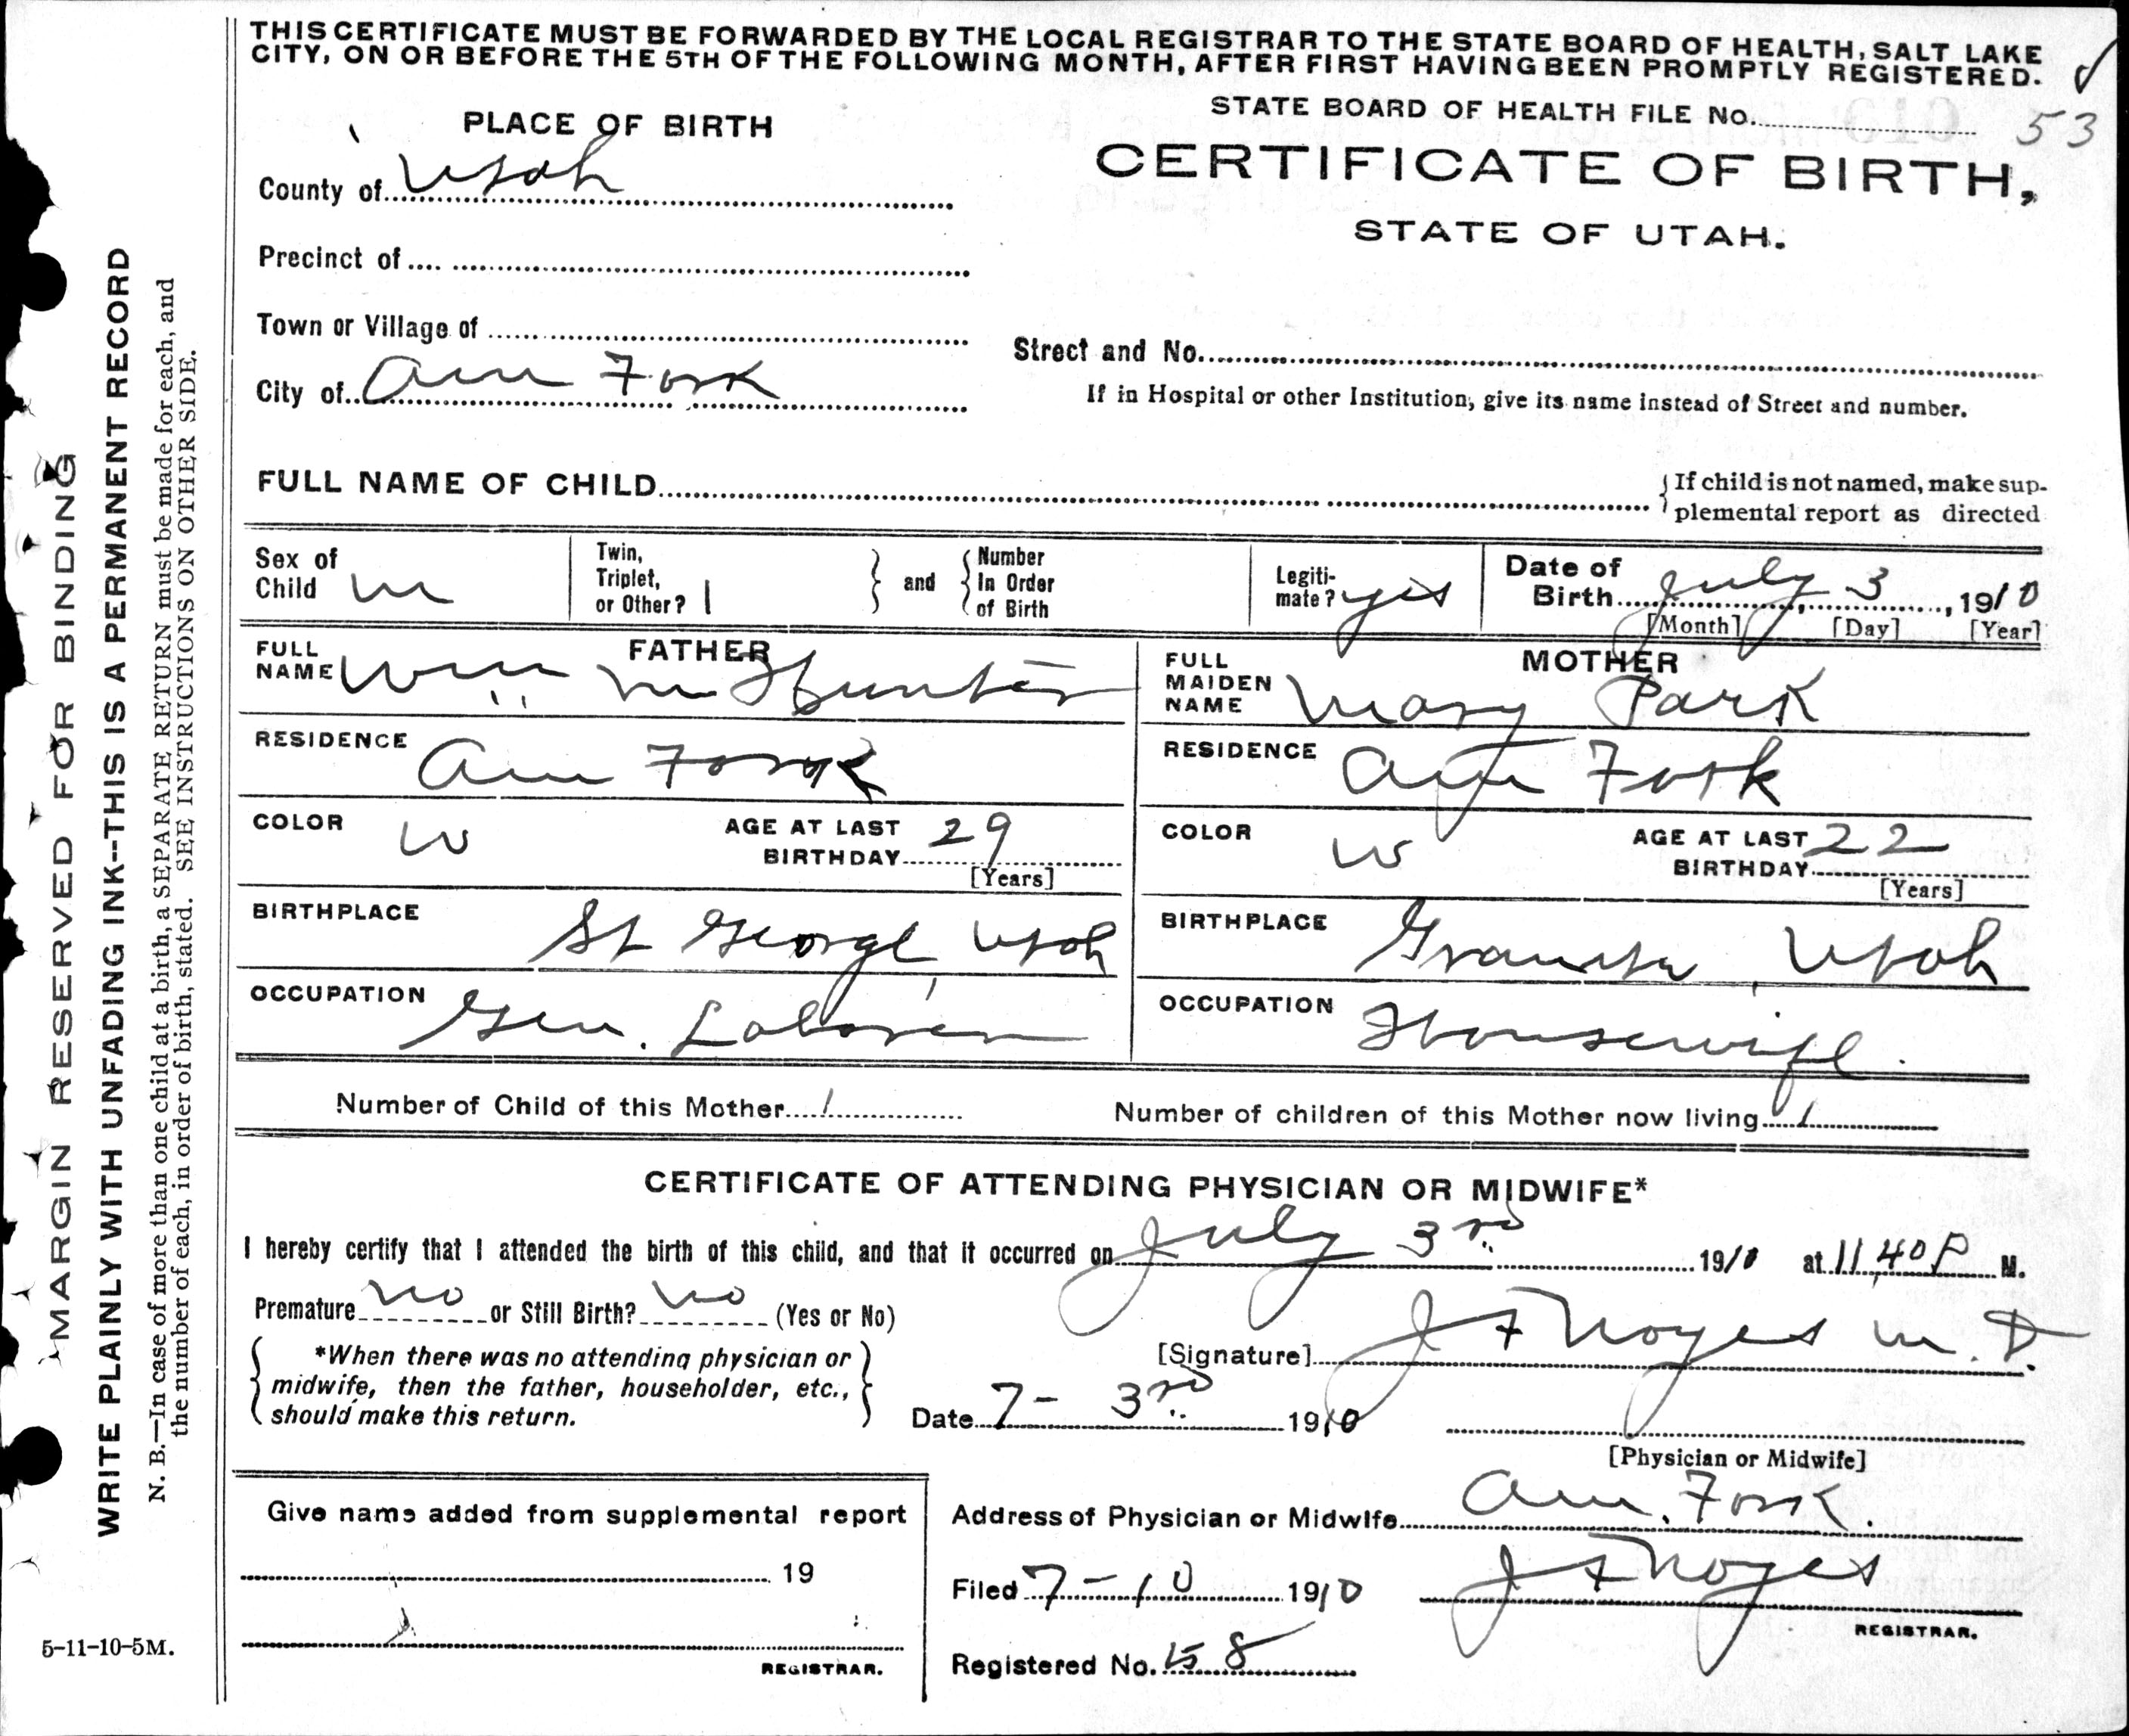 THIS CERTIFICATE MUST BE FORWARDED BY THE LOCAL REGISTRAR TO THE STATE BOARD OF HEALTH, SALT LAKE
CITY, ON OR BEFORE THE 5TH OF THE FOLLOWING MONTH, AFTER FIRST HAVING BEEN PROMPTLY REGISTERED.
STATE BOARD OF HEALTH FILE No. 53
PLACE OF BIRTH
CERTIFICATE OF BIRTH,
STATE OF UTAH.
County of Utah
Precinct of
Town or Village of
Street and No.
City of Am Fork
If in Hospital or other Institution, give its name instead of Street and number.
FULL NAME OF CHILD
If child is not named, make sup-
plemental report as directed
Sex of
Child m
Twin,
Triplet,
or Other? 1
and
Number
In Order
of Birth
Legiti-
mate? yes
Date of
Birth July 3, 1910
[Month] [Day] [Year]
FATHER
FULL
NAME Wm m Hunter
RESIDENCE Am Fork
COLOR W
AGE AT LAST
BIRTHDAY 29
[Years]
BIRTHPLACE St George, Utah
OCCUPATION Gen. Laborer
MOTHER
FULL
MAIDEN
NAME Mary Park
RESIDENCE Am Fork
COLOR W
AGE AT LAST
BIRTHDAY 22
[Years]
BIRTHPLACE Utah
OCCUPATION Housewife
Number of Child of this Mother 1
Number of children of this Mother now living 1
CERTIFICATE OF ATTENDING PHYSICIAN OR MIDWIFE*
I hereby certify that I attended the birth of this child, and that it occurred on July 3rd 1910 at 11,40 P M.
Premature no or Still Birth? no (Yes or No)
*When there was no attending physician or
midwife, then the father, householder, etc.,
should make this return.
[Signature] J F Noyes M. D.
Date 7- 3rd 1910
[Physician or Midwife]
Give name added from supplemental report
19
REGISTRAR.
Address of Physician or Midwife Am. Fork.
Filed 7-10 1910 J F Noyes
REGISTRAR.
Registered No. 58
5-11-10-5M.
MARGIN RESERVED FOR BINDING
WRITE PLAINLY WITH UNFADING INK--THIS IS A PERMANENT RECORD
N. B.—In case of more than one child at a birth, a SEPARATE RETURN must be made for each, and
the number of each, in order of birth, stated. SEE INSTRUCTIONS ON OTHER SIDE.